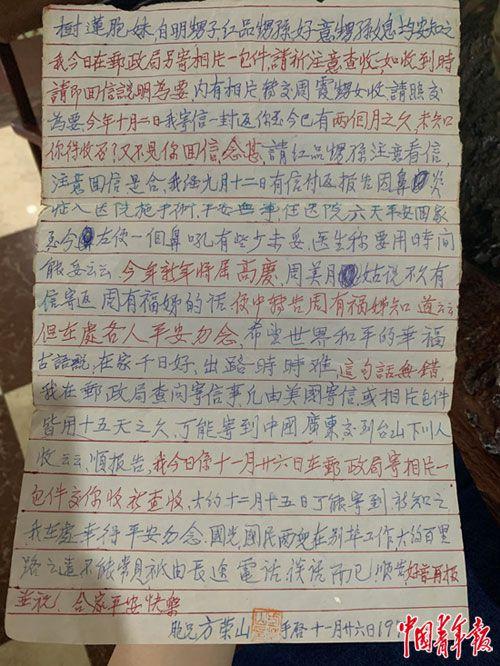 樹蓮胞妹自明甥子紅品甥孫好意甥孫媳均安知之
我今日在郵政局另寄相片一包件,請祈注意查收,如收到時
請即回信說明為要,內有相片替交周靄甥女收,請照交
為要,今年十月二日我寄信一封返你至今已有兩個月之久,未知
你待收否了又不見你回信,念甚,請紅品甥孫注意看信,
注意回信是合,我經九月十二日有信付返報告因鼻 炎
症入医院施手術,平安無事,住医院六天平安回家
至今 左便一個鼻吼有些少未妥,医生称要用時间
能妥云云,今年新年將屆高慶,周美月 姑說不久有
信寄返周有福姊的话,便中替告周有福姊知道云云
但在處各人平安勿念,希望世界和平的幸福
古語說,在家千日好,出路時時難,這句話無錯,
我在郵政局查問寄信事,凡由美國寄信,或相片包件
皆用十五天之久,丁能寄到中國廣東交到台山下川人
收云云,順报告,我今日係十一月廿六日在郵政局寄相片一
包件交你收祈查收,大約十二月十五日丁能寄到,祈知之
我在處幸得平安勿念,國光國民两現在别埠工作,大約百里
路之遠不能常見祇由長途電話談说而已,順告,好音再报
並祝,合家平安快樂
胞兄方榮山 手啓十一月廿六日19
中国青年报